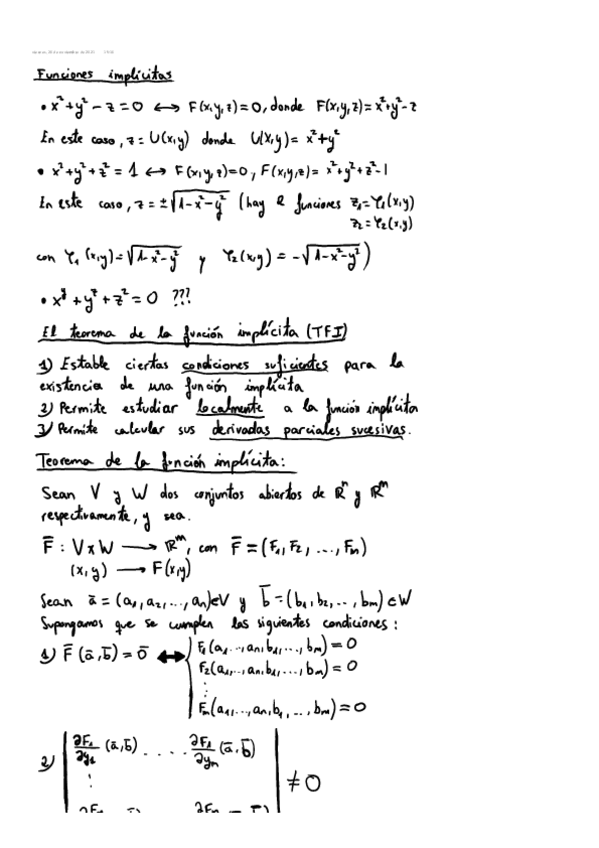 Funciones implícitas
• x² + y² - z = 0 ⟷ F(x,y,z) = 0, donde F(x,y,z) = x² + y² - z
En este caso, z = U(x,y) donde U(x,y) = x² + y²
• x² + y² + z² = 1 ⟷ F(x,y,z) = 0, F(x,y,z) = x² + y² + z² - 1
En este caso, z = ±√(1-x²-y²) (hay 2 funciones z₁ = φ₁(x,y)
z₂ = φ₂(x,y)
con φ₁(x,y) = √(1-x²-y²) y φ₂(x,y) = -√(1-x²-y²))
+ y⁷ + z² = 0 ???
El teorema de la función implícita (TFI)
1) Estable ciertas condiciones suficientes para la
existencia de una función implícita
2) Permite estudiar localmente a la función implícita
3) Permite calcular sus derivadas parciales sucesivas.
Teorema de la función implícita:
Sean V y W dos conjuntos abiertos de ℝⁿ y ℝᵐ
respectivamente, y sea.
F̄ : V x W ⟶ ℝᵐ, con F̄ = (F₁, F₂, ..., Fm)
(x,y) ⟶ F(x,y)
Sean ā = (a₁, a₂, ..., an) ∈ V y b̄ = (b₁, b₂, .., bm) ∈ W
Supongamos que se cumplen las siguientes condiciones:
1) F̄(ā,b̄) = ō ⟷ F₁(a₁...,an,b₁,...,bm) = 0
F₂(a₁,...,an,b₁,...,bm) = 0
⋮
Fm(a₁,...,an,b₁,...,bm) = 0
2) | ∂F₁/∂y₁ (ā,b̄) .... ∂F₁/∂ym (ā,b̄) |
⋮ ≠ 0